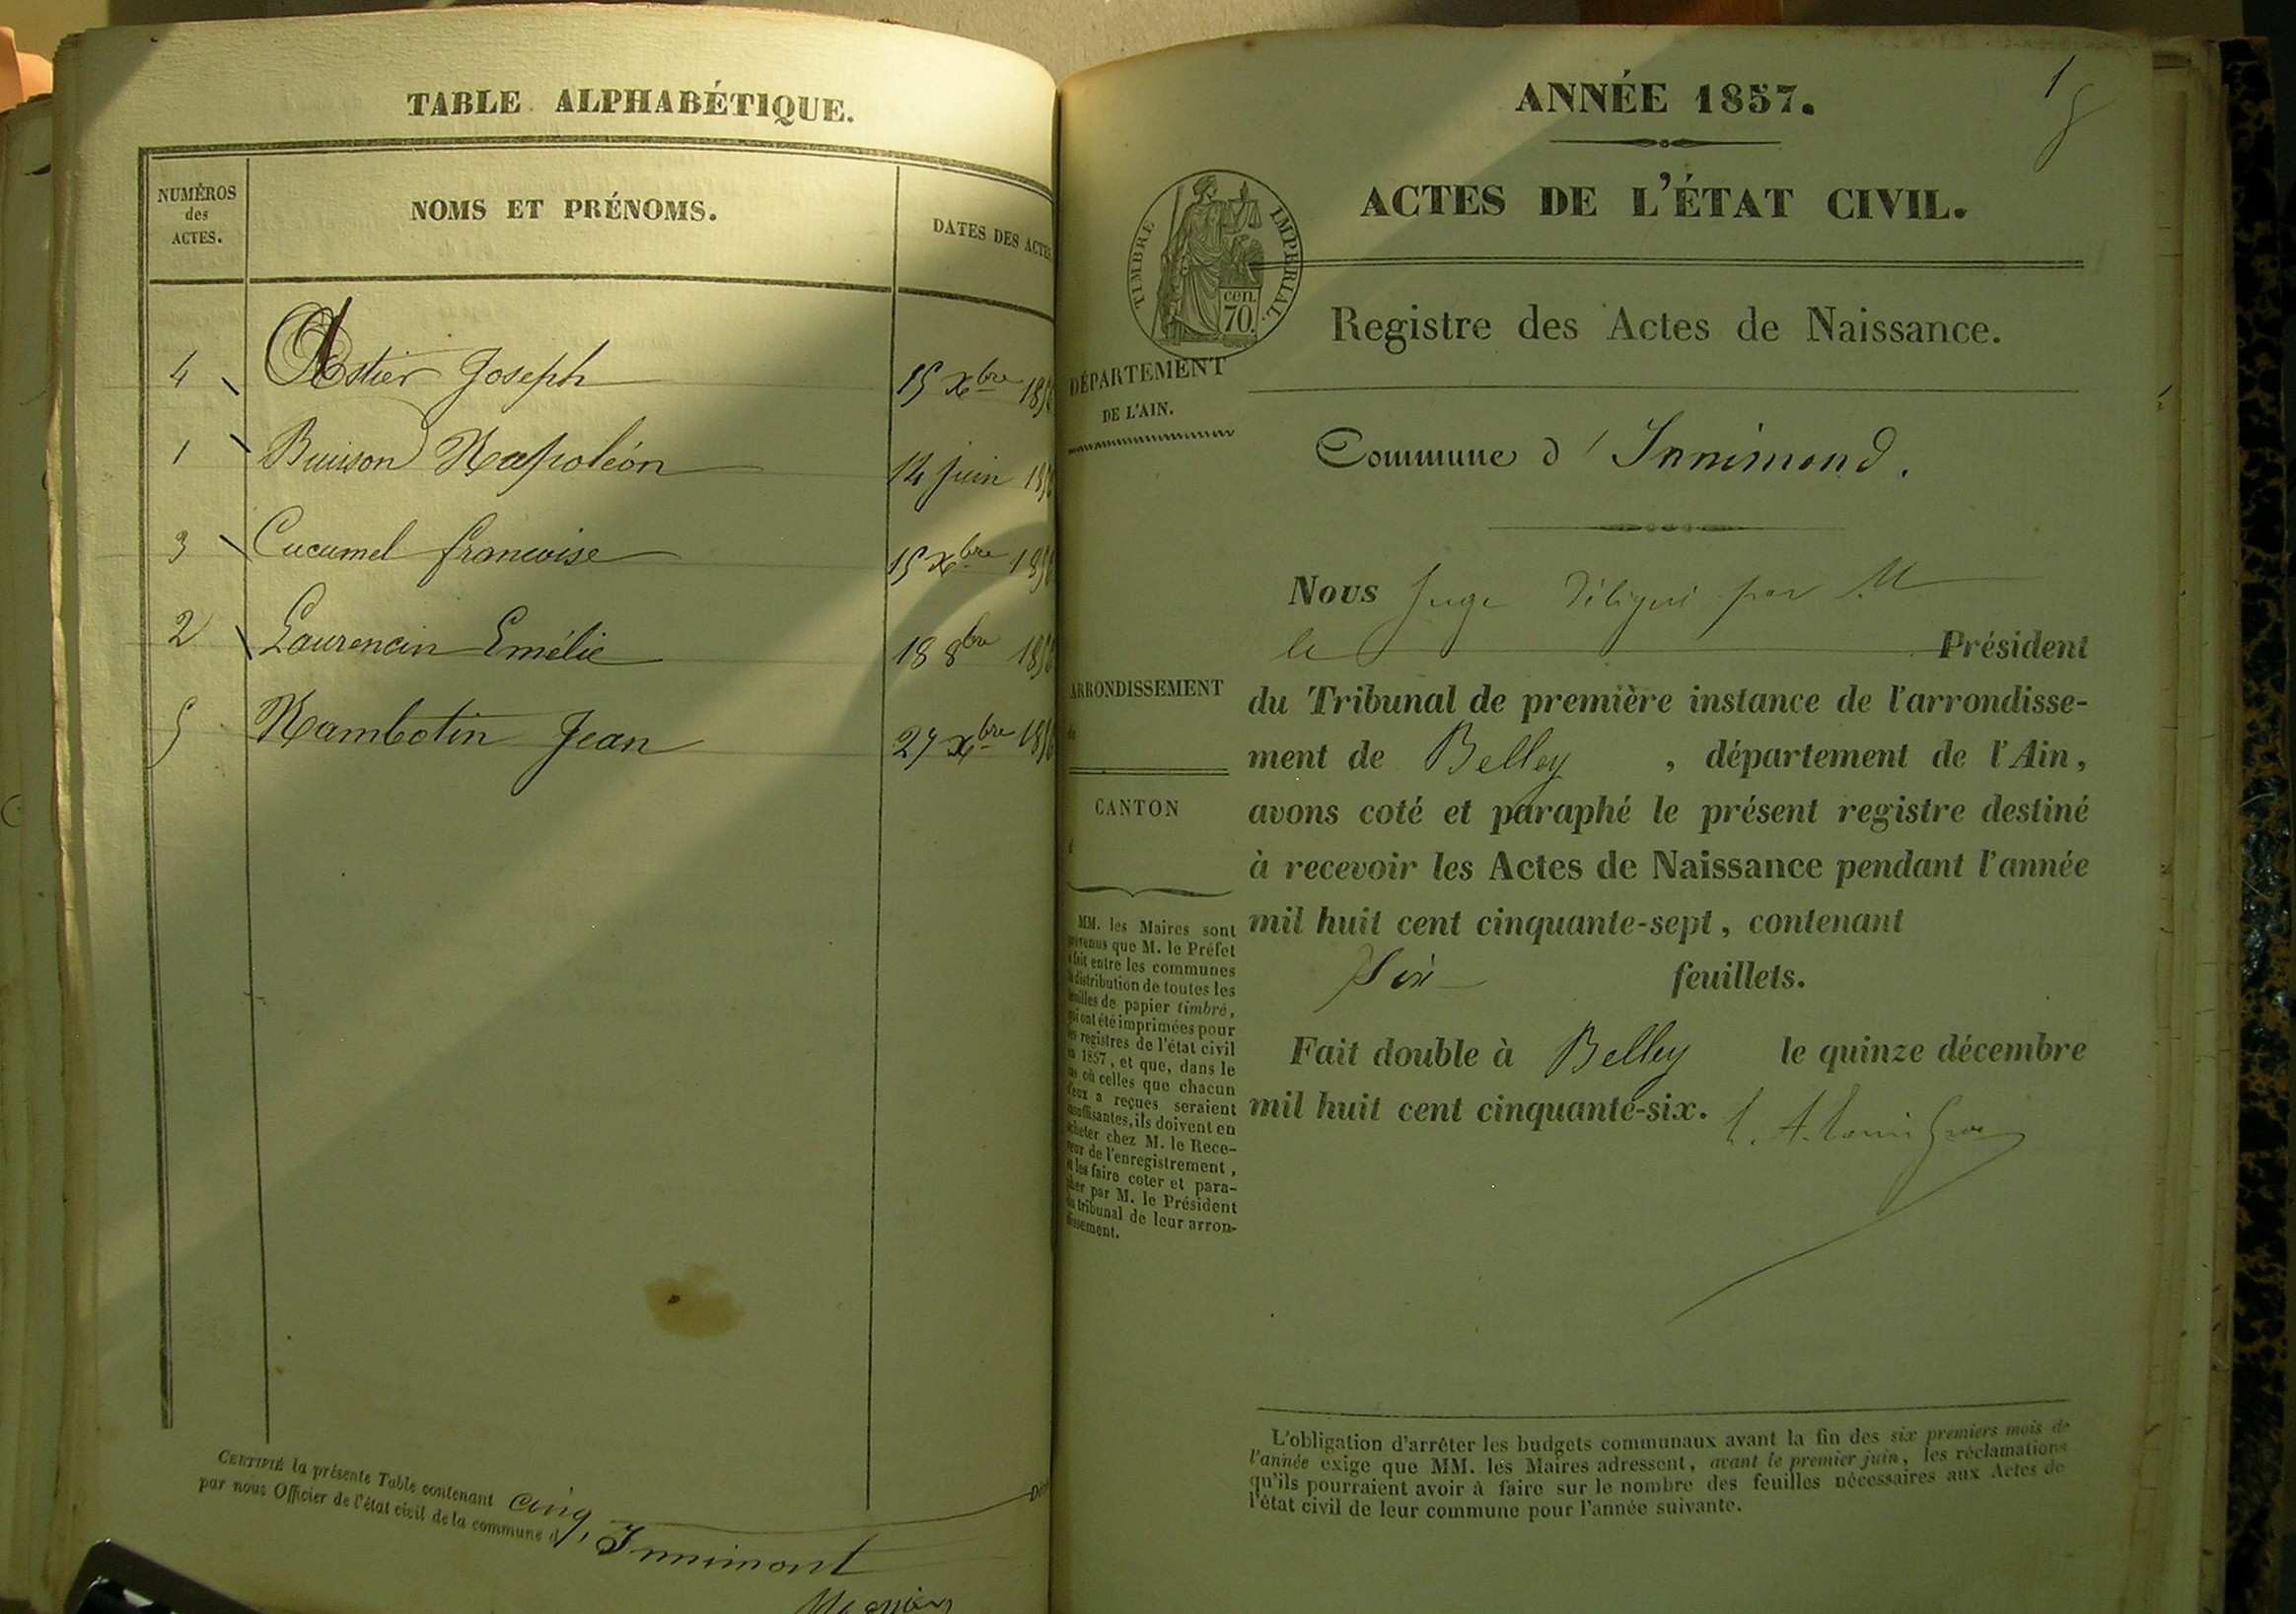 TABLE ALPHABÉTIQUE.
NUMÉROS
des
ACTES.
NOMS ET PRÉNOMS.
DATES DES ACTES
4 Astier Joseph 15 Xbre 185
1 Buisson Napoléon 14 juin 185
3 Cucumel francoise 15 Xbre 185
2 Laurencin Emélie 18 8bre 185
5 Nambotin Jean 27 Xbre 185
CERTIFIÉ la présente Table contenant cinq
par nous Officier de l'état civil de la commune d' Innimont
1
ANNÉE 1857.
ACTES DE L'ÉTAT CIVIL.
TIMBRE IMPÉRIAL.
cen.
70.
Registre des Actes de Naissance.
DÉPARTEMENT
DE L'AIN.
Commune d' Innimond.
ARRONDISSEMENT
de
CANTON
d
MM. les Maires sont
prévenus que M. le Préfet
a fait entre les communes
la distribution de toutes les
feuilles de papier timbré,
qui ont été imprimées pour
les registres de l'état civil
en 1857, et que, dans le
cas où celles que chacun
d'eux a reçues seraient
insuffisantes, ils doivent en
acheter chez M. le Rece-
veur de l'enregistrement,
et les faire coter et para-
pher par M. le Président
du tribunal de leur arron-
dissement.
Nous Juge délégué par M
le Président
du Tribunal de première instance de l'arrondisse-
ment de Belley , département de l'Ain,
avons coté et paraphé le présent registre destiné
à recevoir les Actes de Naissance pendant l'année
mil huit cent cinquante-sept, contenant
Six feuillets.
Fait double à Belley le quinze décembre
mil huit cent cinquante-six.
L'obligation d'arrêter les budgets communaux avant la fin des six premiers mois de
l'année exige que MM. les Maires adressent, avant le premier juin, les réclamations
qu'ils pourraient avoir à faire sur le nombre des feuilles nécessaires aux Actes de
l'état civil de leur commune pour l'année suivante.